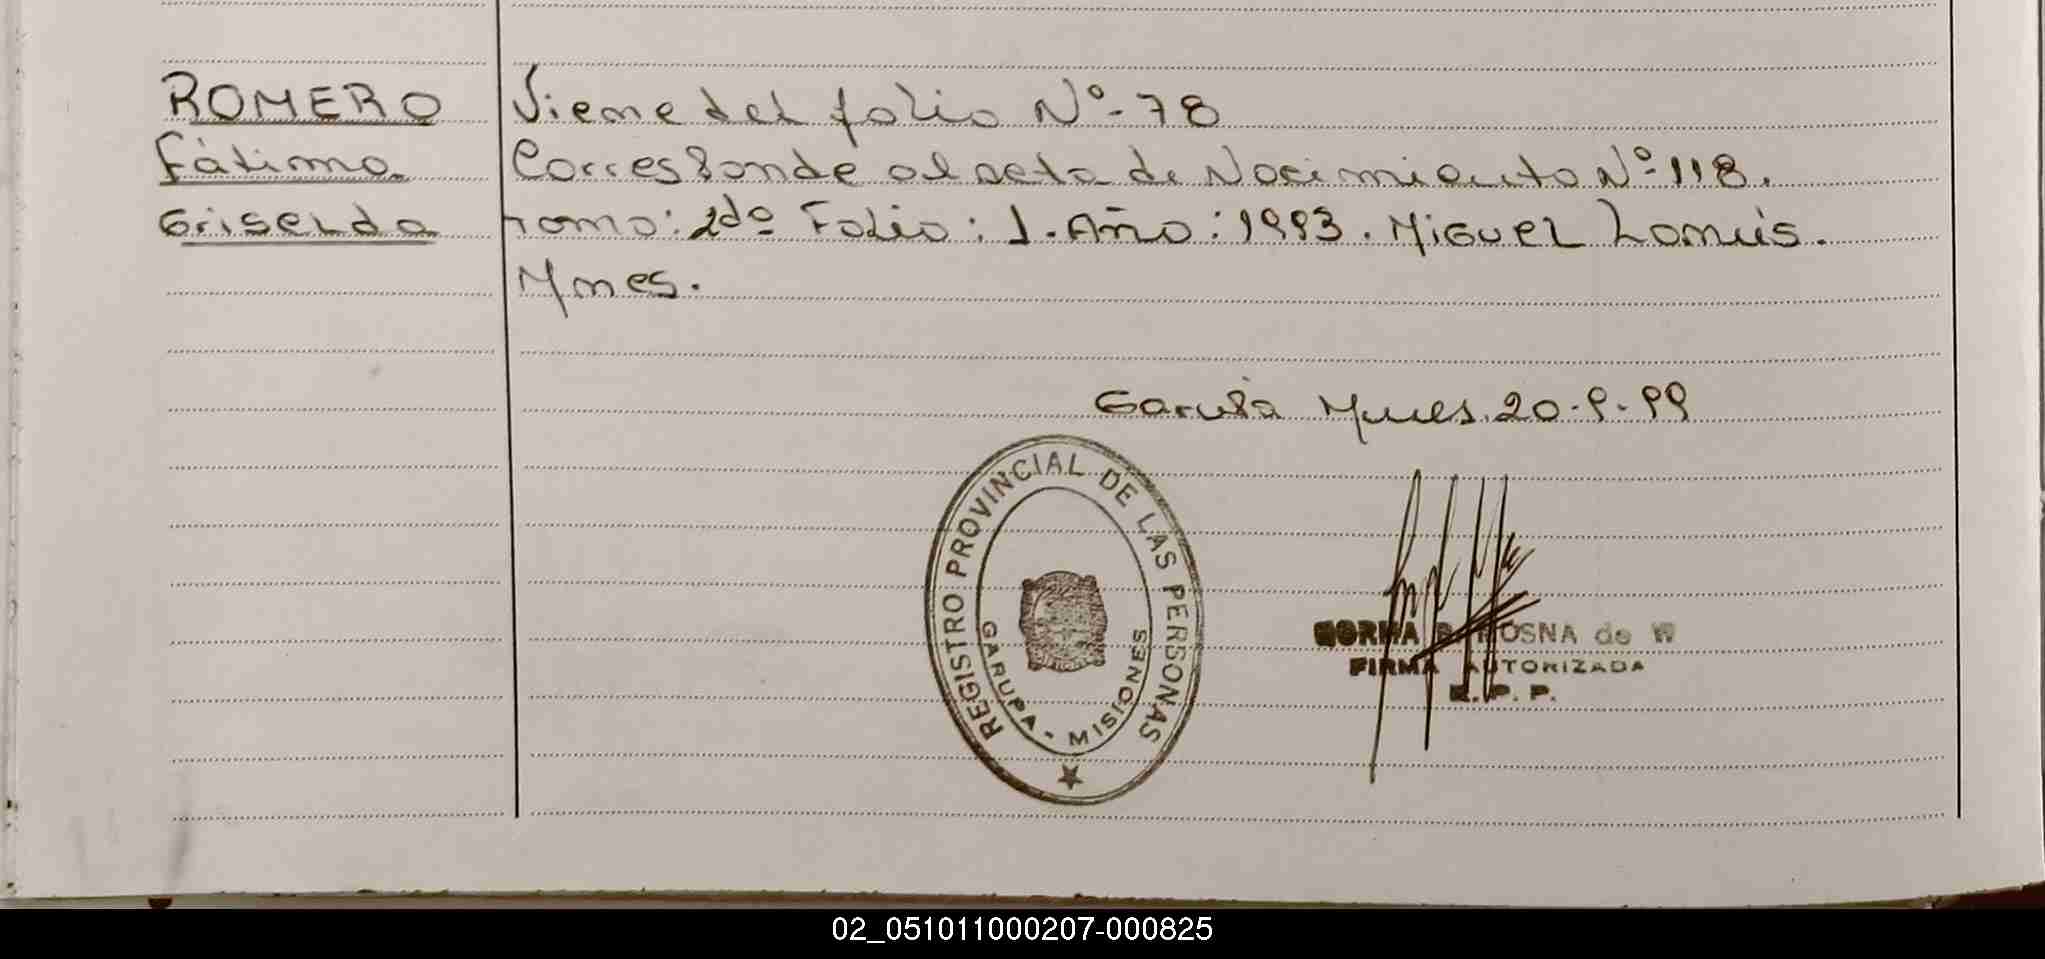 ROMERO
Fátima
Griselda
Viene del folio Nº-78
Corresponde al acta de Nacimiento Nº-118.
tomo: 2dº Folio: 1. Año: 1993. Miguel Lanús.
Mnes.
Garupá Mnes. 20-9-99
REGISTRO PROVINCIAL DE LAS PERSONAS
GARUPA - MISIONES
NORMA B. ROSNA de W
FIRMA AUTORIZADA
R. P. P.
02_051011000207-000825